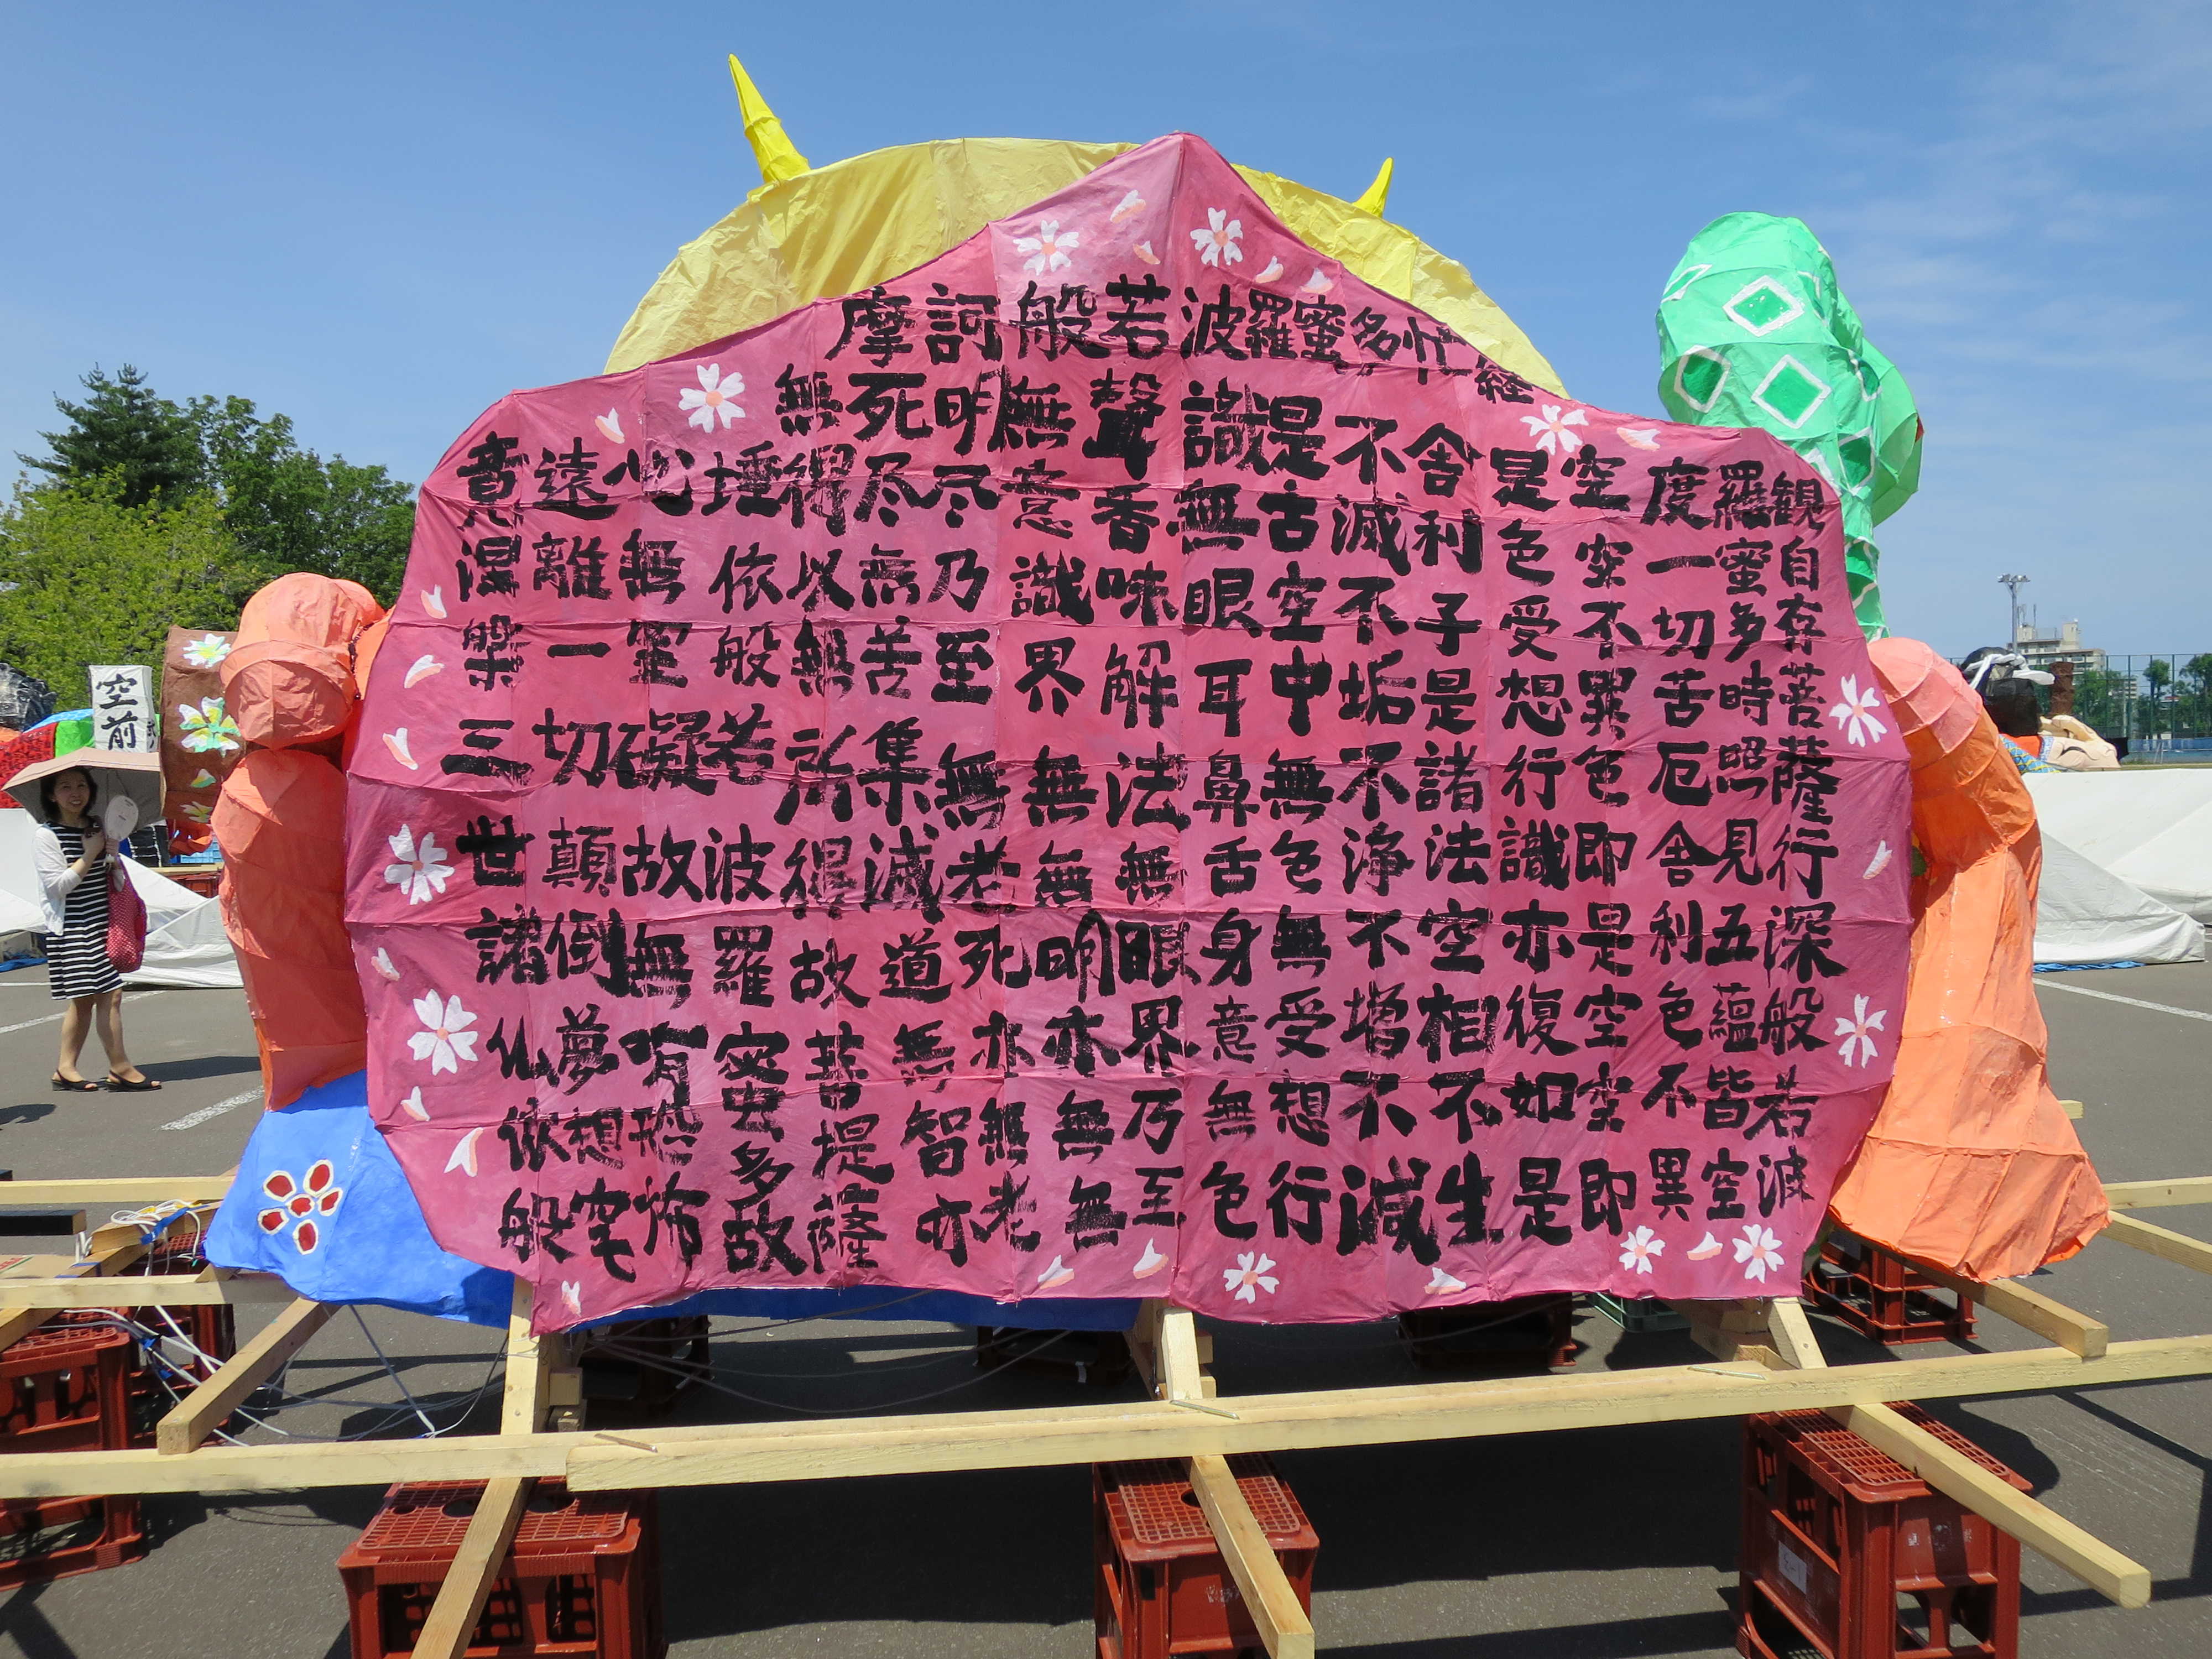 摩訶般若波羅蜜多忙経
観自存菩薩行深般若波
羅蜜多時照見五蘊皆空
度一切苦厄舎利色不異
空空不異色即是空空即
是色受想行識亦復如是
舎利子是諸法空相不生
不滅不垢不浄不増不減
是古空中無色無受想行
識無眼耳鼻舌身意無色
聲香味解法無眼界乃至
無意識界無無明亦無無
明尽乃至無老死亦無老
死尽無苦集滅道無智亦
無得以無所得故菩提薩
埵依般若波羅蜜多故
心無罣礙故無有恐怖
遠離一切顛倒夢想究
竟涅槃三世諸仏依般
空前